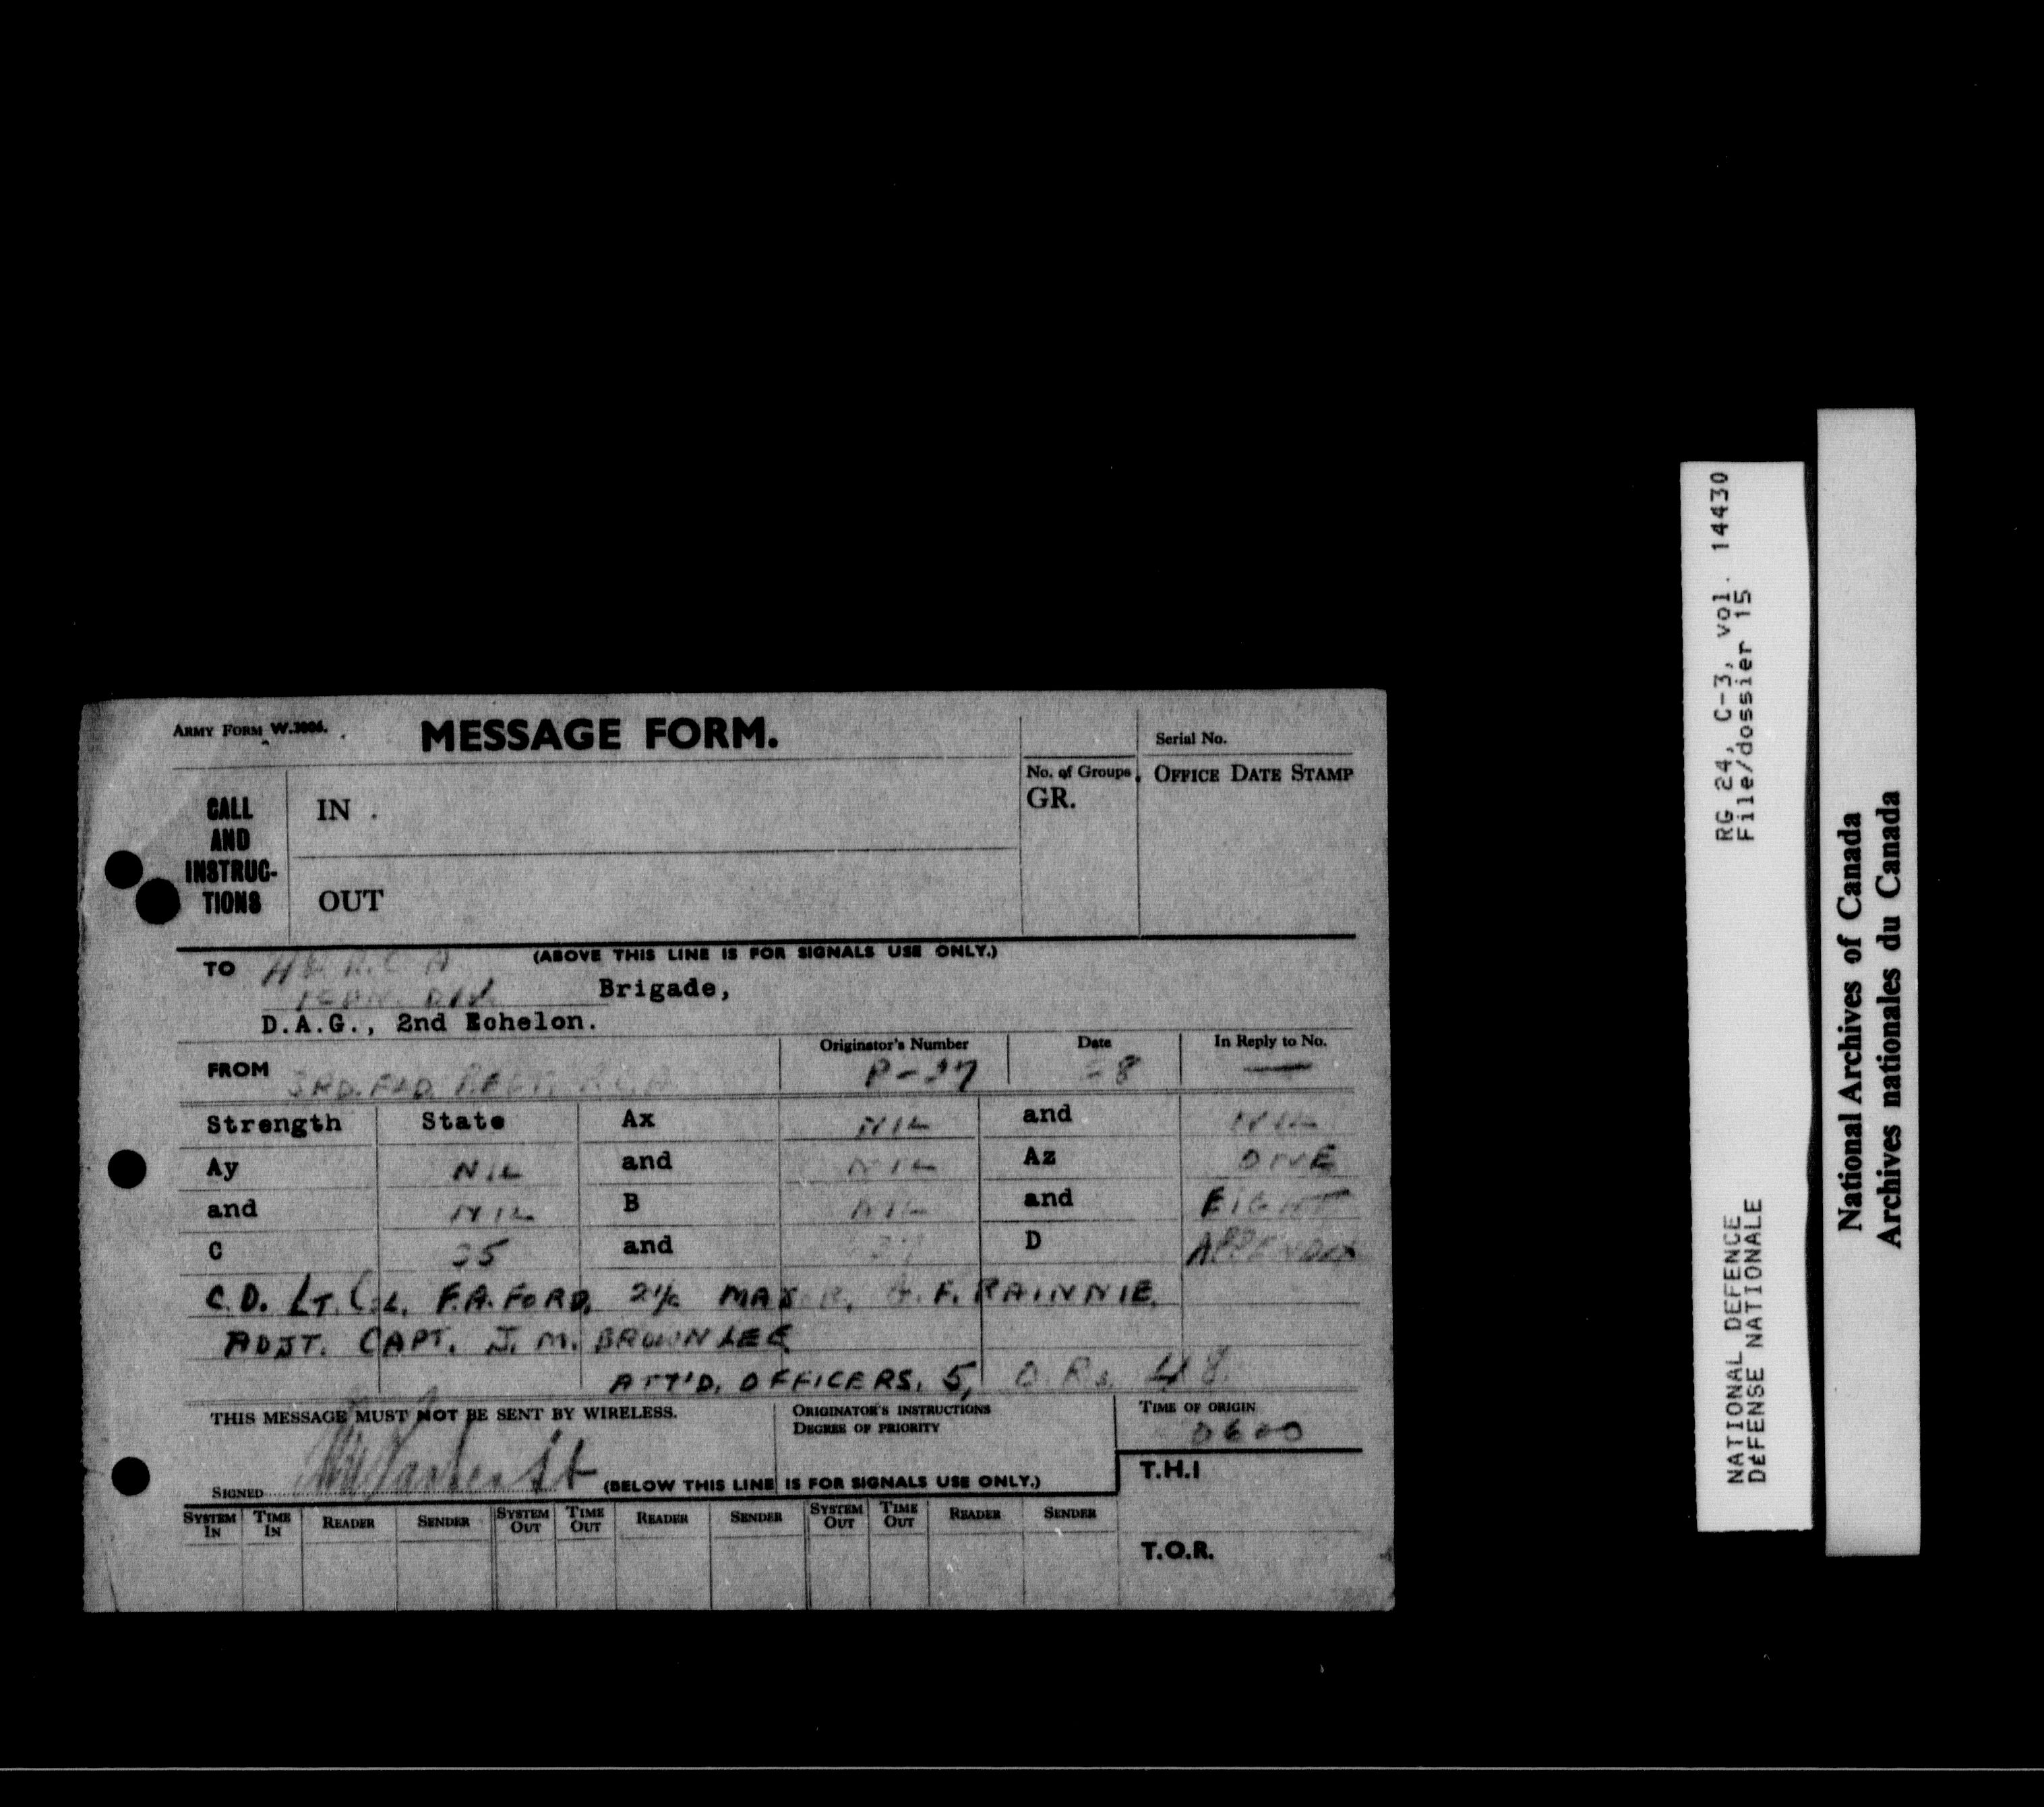 ARMY FORM W.3006.
MESSAGE FORM.
Serial No.
CALL AND INSTRUC-TIONS
IN
No. of Groups
GR.
OFFICE DATE STAMP
OUT
(ABOVE THIS LINE IS FOR SIGNALS USE ONLY.)
TO HQ R.C.A
DIV. Brigade,
D.A.G., 2nd Echelon.
FROM 3RD. FLD. REGT. R.C.A
Originator's Number P-27
Date 8
In Reply to No. —
Strength State Ax NIL and NIL
Ay NIL and NIL Az ONE
and NIL B NIL and EIGHT
C 35 and D APPENDIX
C.O. LT. COL. F.A. FORD, 2i/c MAJOR. F. RAINNIE.
ADJT. CAPT. J. M. BROWNLEE
ATT'D. OFFICERS. 5, O.Rs. 48.
THIS MESSAGE MUST NOT BE SENT BY WIRELESS.
ORIGINATOR'S INSTRUCTIONS
DEGREE OF PRIORITY
TIME OF ORIGIN
0600
SIGNED Lt
(BELOW THIS LINE IS FOR SIGNALS USE ONLY.)
T.H.I
SYSTEM IN TIME IN READER SENDER SYSTEM OUT TIME OUT READER SENDER SYSTEM OUT TIME OUT READER SENDER
T.O.R.
RG 24, C-3, vol. 14430
File/dossier 15
NATIONAL DEFENCE
DEFENSE NATIONALE
National Archives of Canada
Archives nationales du Canada